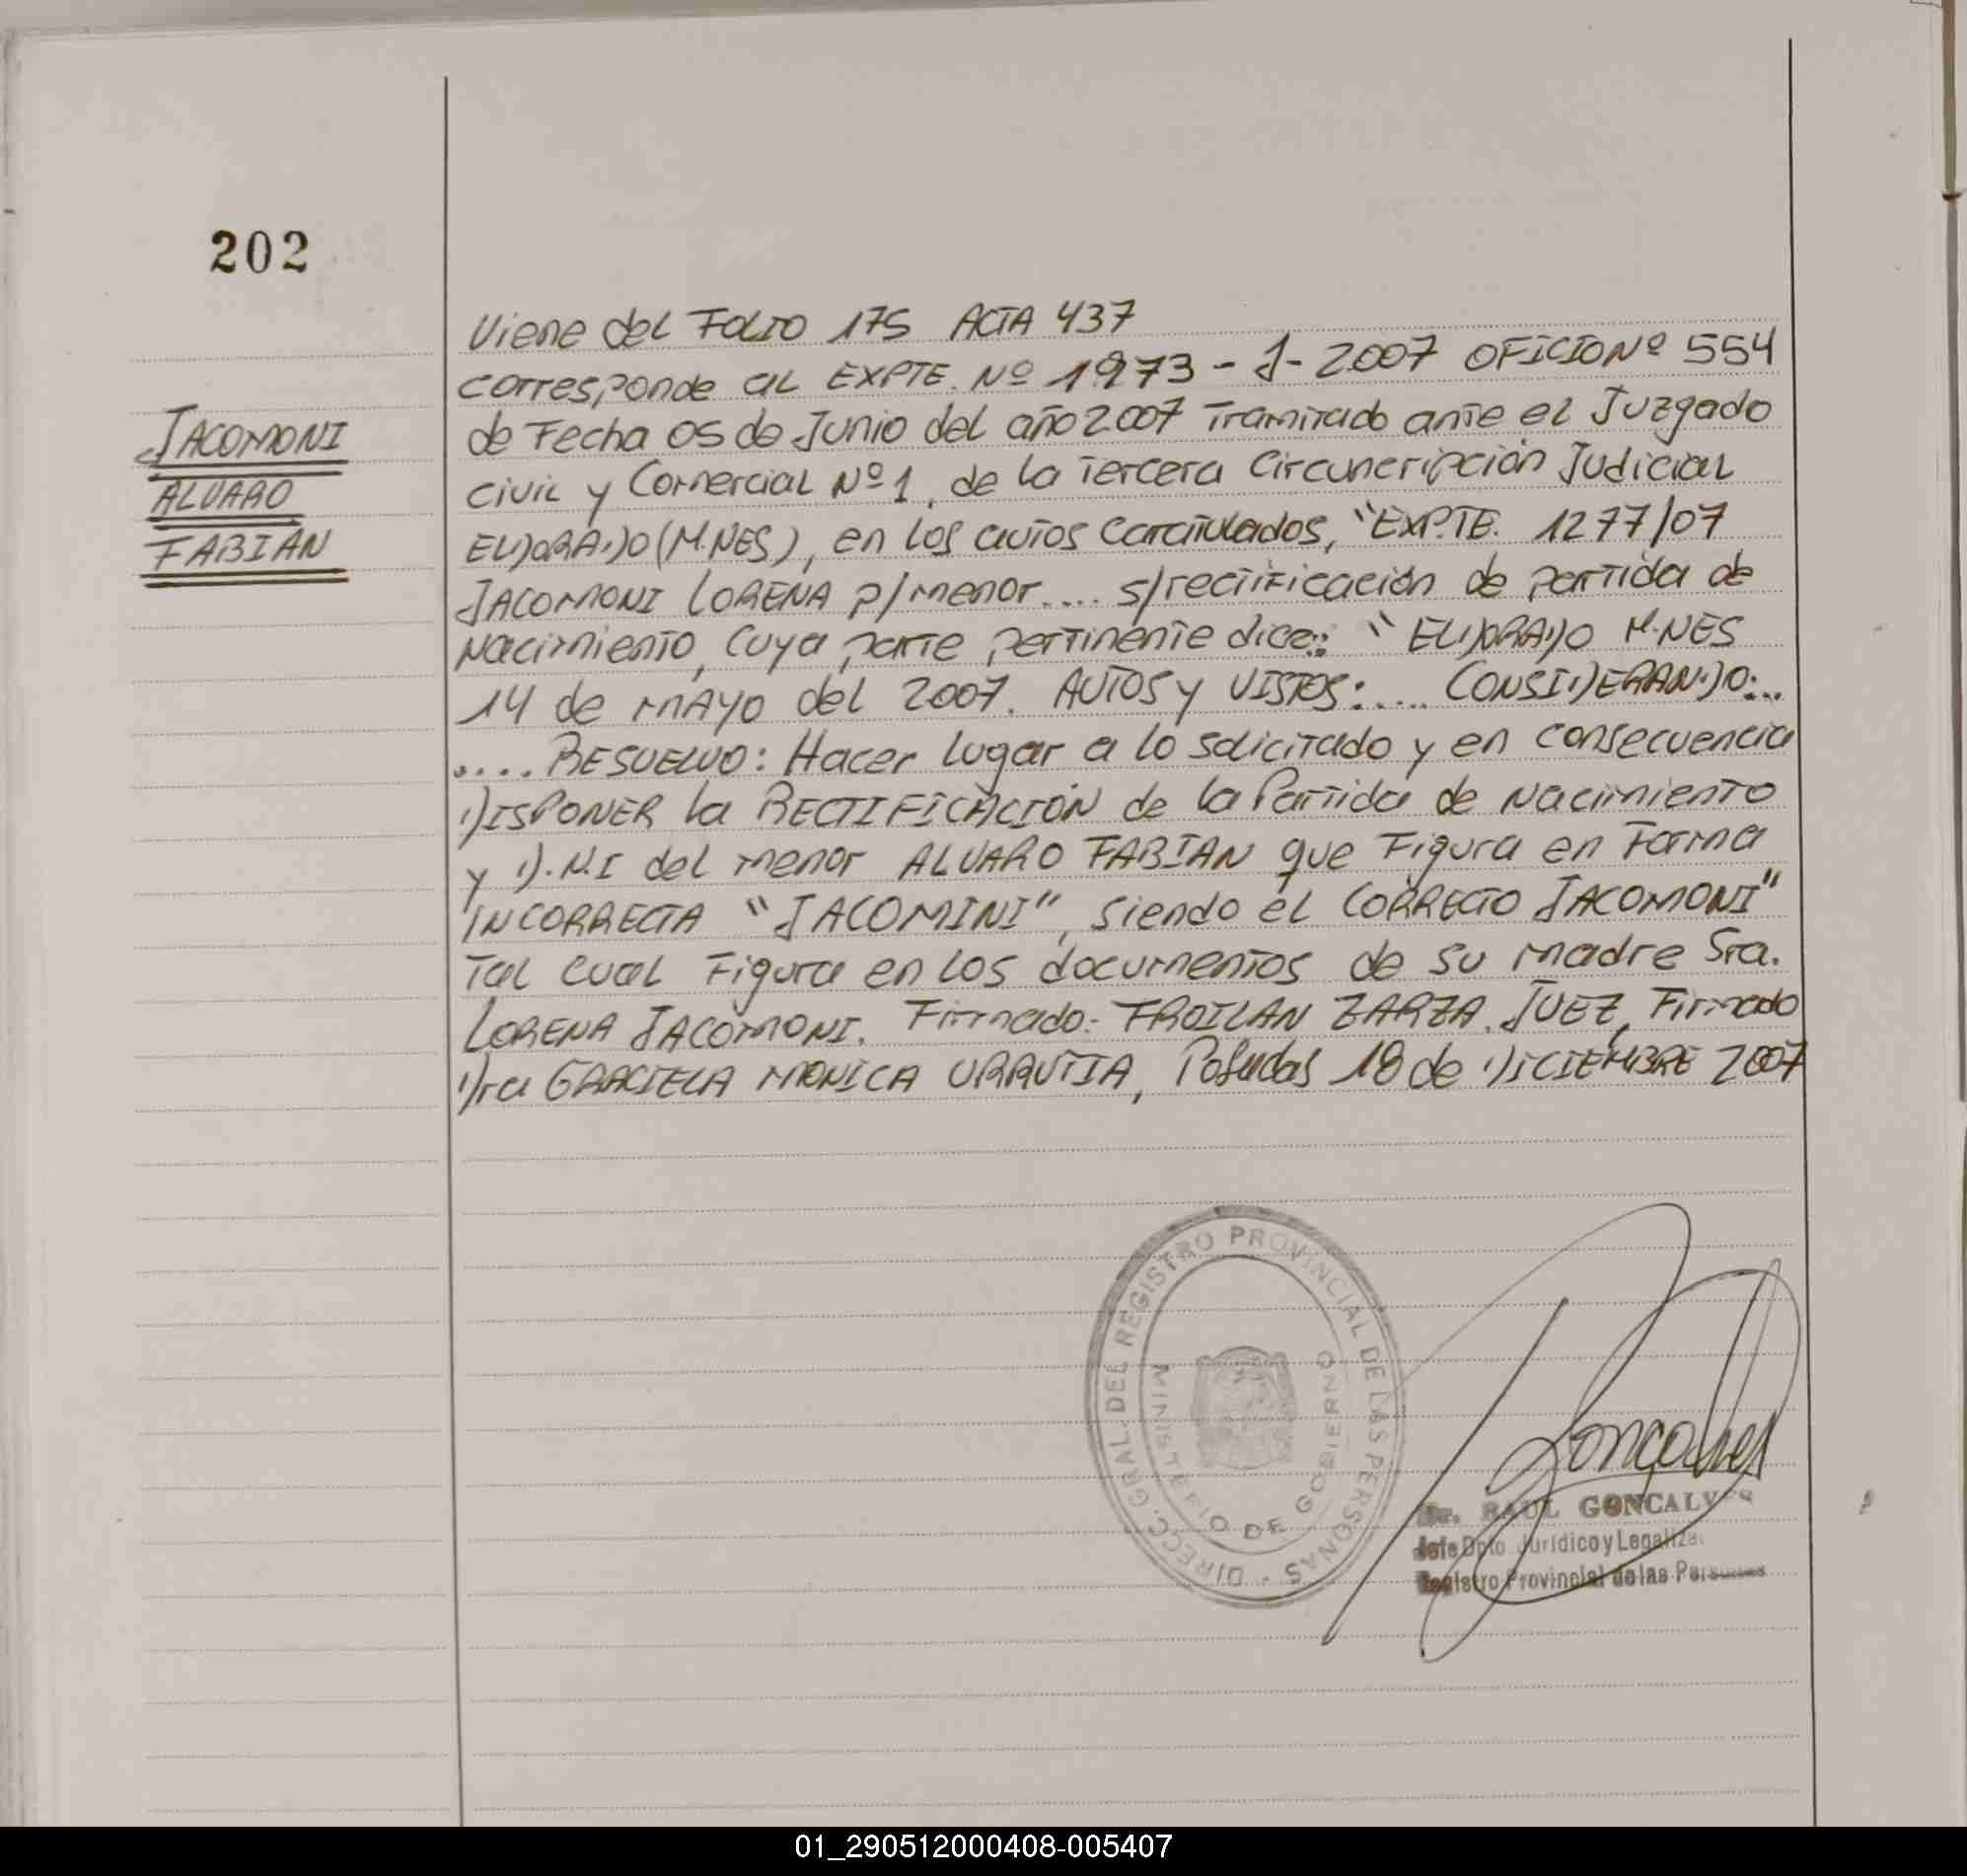 202
JACOMONI
ALVARO
FABIAN
Viene del FOLIO 175 ACTA 437
corresponde al EXPTE. Nº 1973 - J - 2007 OFICIO Nº 554
de Fecha 05 de Junio del año 2007 Tramitado ante el Juzgado
civil y Comercial Nº 1, de la Tercera Circuncripción Judicial
ELDORADO (M.NES), en los autos Caratulados, "EXPTE. 1277/07
JACOMONI LORENA p/menor.... s/rectificación de partida de
Nacimiento, Cuya parte pertinente dice:: " ELDORADO M.NES
14 de MAYO del 2007. AUTOS y VISTOS:..... CONSIDERANDO:..
.... RESUELVO: Hacer lugar a lo solicitado y en consecuencia
DISPONER la RECTIFICACIÓN de la Partida de Nacimiento
y D.N.I del menor ALVARO FABIAN que Figura en Forma
INCORRECTA "JACOMINI", siendo el CORRECTO JACOMONI"
Tal cual Figura en los documentos de su madre Sra.
LORENA JACOMONI. Firmado: FROILAN ZARZA. JUEZ, Firmado
Dra GRACIELA MONICA URRUTIA, Posadas 18 de DICIEMBRE 2007
DIRECC. GRAL. DEL REGISTRO PROVINCIAL DE LAS PERSONAS -
MINISTERIO DE GOBIERNO
Goncalves
Dr. RAUL GONCALVES
Jefe Dpto Jurídico y Legaliza
Registro Provincial de las Personas
01_290512000408-005407